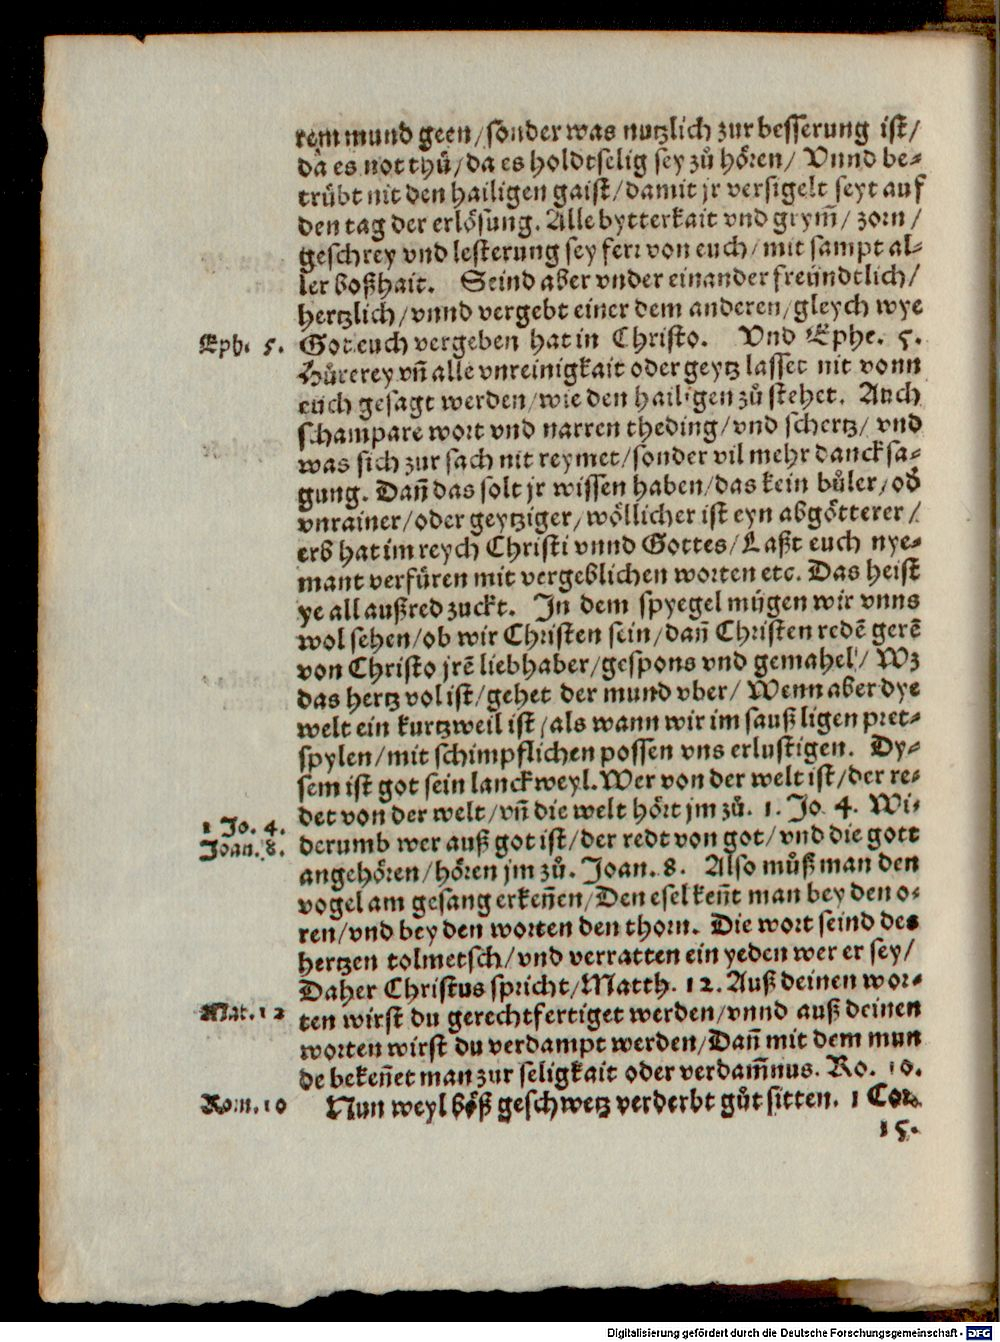 rem mund geen/sonder was nutzlich zur besserung ist/
da es not thů/da es holdtselig sey zů hören/ Vnnd be-
trübt nit den hailigen gaist/damit jr versigelt seyt auf
den tag der erlösung. Alle bytterkait vnd grym̄/ zorn/
geschrey vnd lesterung sey ferr von euch/mit sampt al-
ler boßhait. Seind aber vnder einander freündtlich/
hertzlich/vnnd vergebt einer dem anderen/gleych wye
Eph. 5. Got euch vergeben hat in Christo. Vnd Ephe. 5.
Hůrerey vn̄ alle vnreinigkait oder geytz lasset nit vonn
euch gesagt werden/wie den hailigen zů stehet. Auch
schampare wort vnd narren theding/vnd schertz/ vnd
was sich zur sach nit reymet/sonder vil mehr dancksa-
gung. Dan̄ das solt jr wissen haben/das kein bůler/od
vnrainer/oder geytziger/wöllicher ist eyn abgötterer/
erb hat im reych Christi vnnd Gottes/Laßt euch nye-
mant verfüren mit vergeblichen worten etc. Das heist
ye all außred zuckt. In dem spyegel mügen wir vnns
wol sehen/ob wir Christen sein/dan̄ Christen redē gerē
von Christo jrē liebhaber/gespons vnd gemahel/ Wz
das hertz vol ist/gehet der mund vber/ Wenn aber dye
welt ein kurtzweil ist/als wann wir im sauß ligen pret-
spylen/mit schimpflichen possen vns erlustigen. Dy-
sem ist got sein lanckweyl. Wer von der welt ist/der re-
1 Jo. 4. det von der welt/vn̄ die welt hört jm zů. 1. Jo. 4. Wi-
Joan. 8. derumb wer auß got ist/der redt von got/vnd die gott
angehören/hören jm zů. Joan. 8. Also můß man den
vogel am gesang erken̄en/Den esel ken̄t man bey den o-
ren/vnd bey den worten den thorn. Die wort seind des
hertzen tolmetsch/vnd verratten ein yeden wer er sey/
Daher Christus spricht/Matth. 12. Auß deinen wor-
Mat. 12 ten wirst du gerechtfertiget werden/vnnd auß deinen
worten wirst du verdampt werden/Dan̄ mit dem mun
de beken̄et man zur seligkait oder verdam̄nus. Ro. 10.
Rom. 10 Nun weyl böß geschwetz verderbt gůt sitten. 1 Cor.
15.
Digitalisierung gefördert durch die Deutsche Forschungsgemeinschaft - DFG